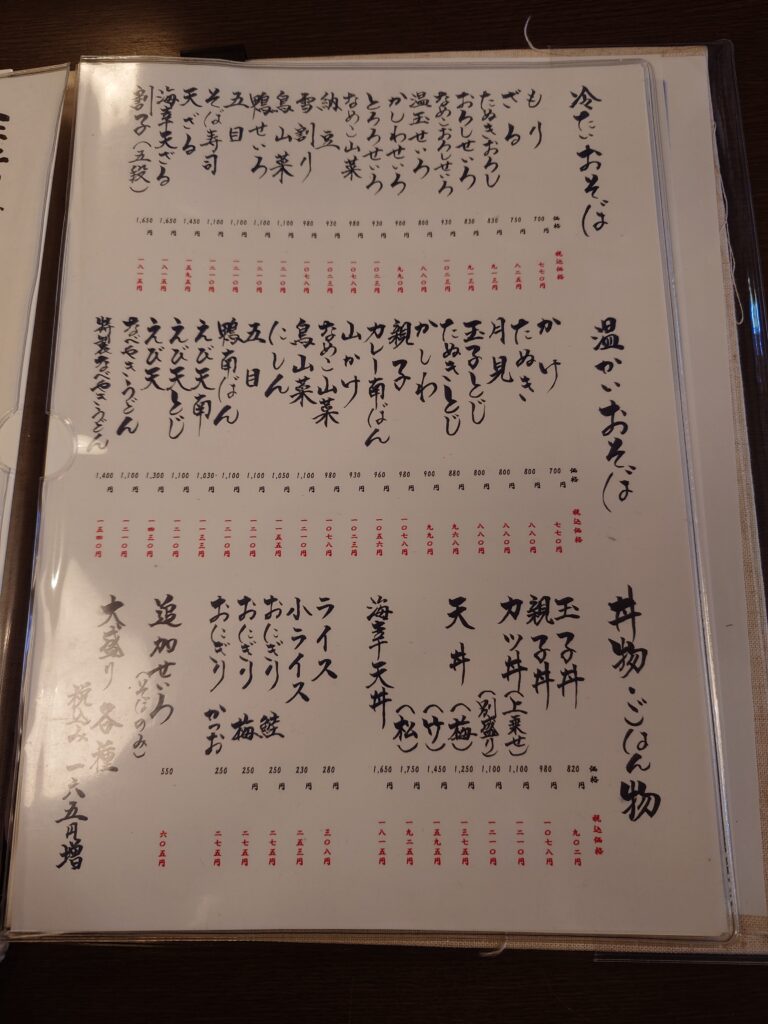 冷たいおそば
価格
税込価格
もり 700円 七七〇円
ざる 750円 八二五円
たぬきおろし 830円 九一三円
おろしせいろ 830円 九一三円
なめこおろしせいろ 930円 一〇二三円
温玉せいろ 800円 八八〇円
かしわせいろ 900円 九九〇円
とろろせいろ 930円 一〇二三円
なめこ山菜 980円 一〇七八円
納豆 930円 一〇二三円
雪割り 980円 一〇七八円
鳥山菜 1,100円 一二一〇円
鴨せいろ 1,100円 一二一〇円
五目 1,100円 一二一〇円
そば寿司 1,100円 一二一〇円
天ざる 1,450円 一五九五円
海幸天ざる 1,650円 一八一五円
割子(五段) 1,650円 一八一五円
温かいおそば
価格
税込価格
かけ 700円 七七〇円
たぬき 800円 八八〇円
月見 800円 八八〇円
玉子とじ 800円 八八〇円
たぬきとじ 880円 九六八円
かしわ 900円 九九〇円
親子 980円 一〇七八円
カレー南ばん 960円 一〇五六円
山かけ 930円 一〇二三円
なめこ山菜 980円 一〇七八円
鳥山菜 1,100円 一二一〇円
にしん 1,050円 一一五五円
五目 1,100円 一二一〇円
鴨南ばん 1,100円 一二一〇円
えび天南 1,030円 一一三三円
えび天とじ 1,100円 一二一〇円
えび天 1,300円 一四三〇円
なべやきうどん 1,100円 一二一〇円
特製なべやきうどん 1,400円 一五四〇円
丼物・ごはん物
価格
税込価格
玉子丼 820円 九〇二円
親子丼 980円 一〇七八円
カツ丼(上乗せ) 1,100円 一二一〇円
(別盛り) 1,100円 一二一〇円
天丼(梅) 1,250円 一三七五円
(竹) 1,450円 一五九五円
(松) 1,750円 一九二五円
海幸天丼 1,650円 一八一五円
ライス 280円 三〇八円
小ライス 230円 二五三円
おにぎり 鮭 250円 二七五円
おにぎり 梅 250円 二七五円
おにぎり かつお 250円 二七五円
追加せいろ 550円 六〇五円
(そばのみ)
大盛り 各種
税込み 一六五円増